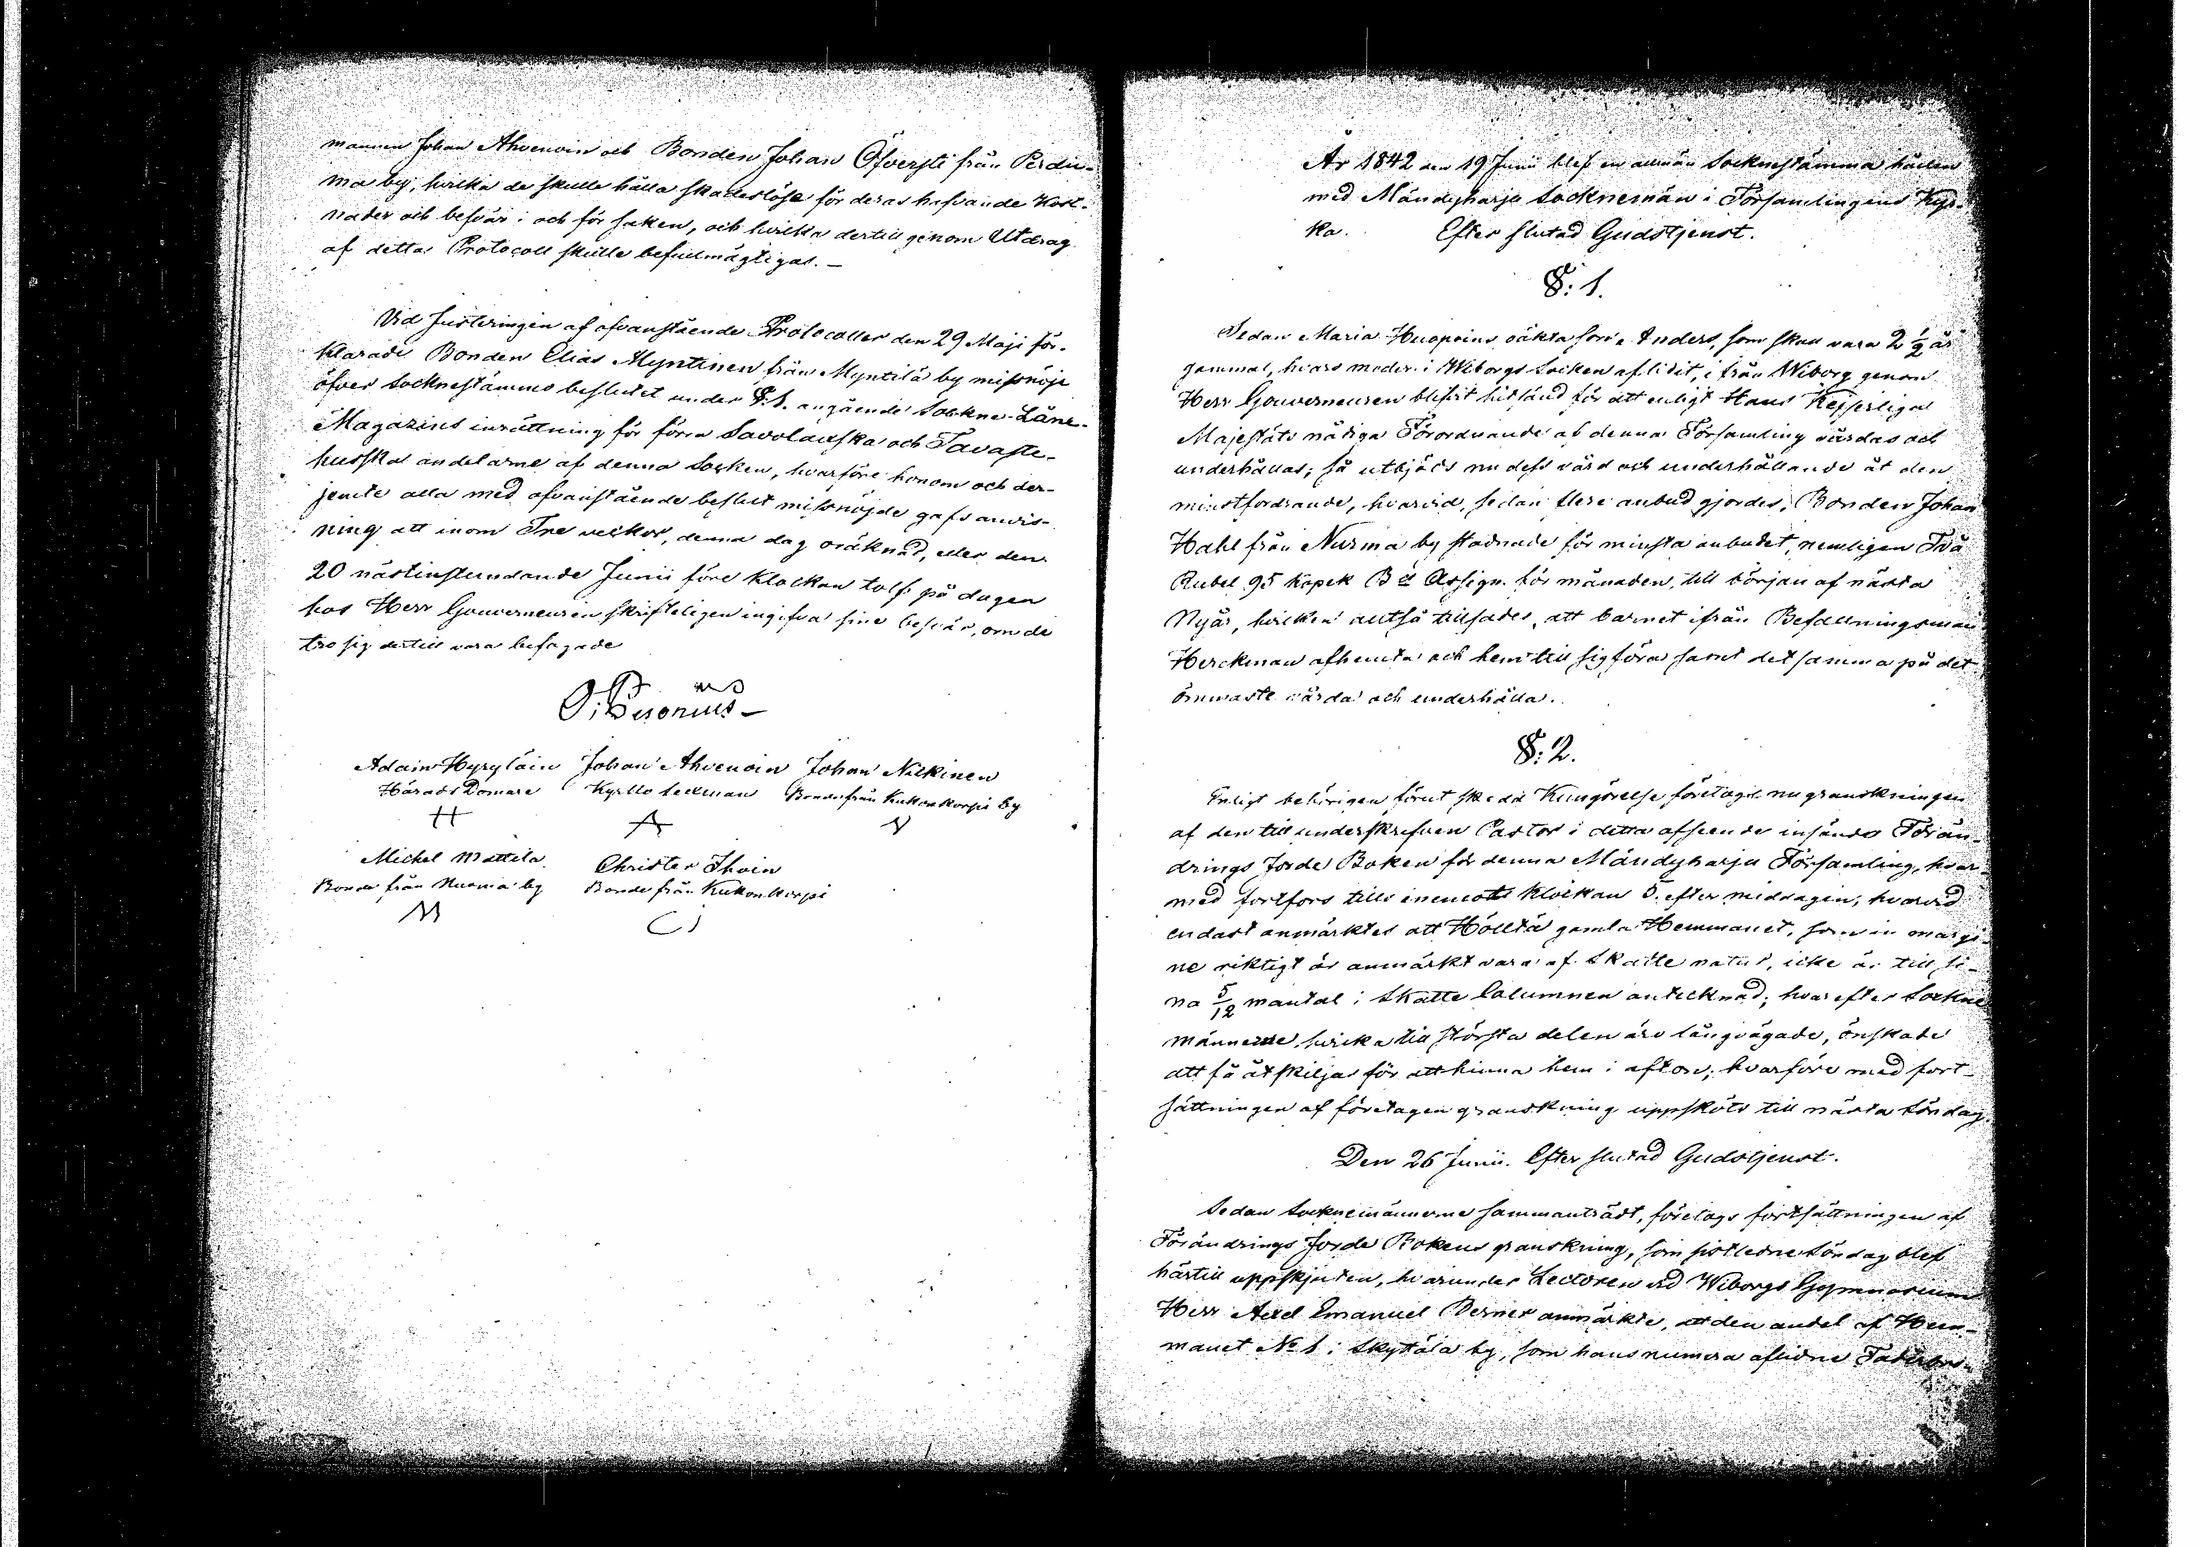 mannen Johan Ahvenoin och Bonden Johan Öfversti från Perdu-
ma by, hvilka de skulle hålla skadeslöse för deras hafvande Kost-
nader och besvär i och för saken, och hvilka dertill genom Utdrag
af detta Protocoll skulle befullmägtigas. —
Vid justeringen af ofvanstående Protocoller den 29 Maji för-
klarade Bonden Elias Myntinen från Myntilä by missnöje
öfver Socknestämmos beslutet under §.1. angående Sockne-Låne-
Magazins inrättning för förra Savolaxska och Tavaste-
husska andelarne af denna Socken, hvarföre honom och der-
jemte alla med ofvanstående beslut missnöjde gafs anvis-
ning att inom Tre veckor, denna dag oräknad, eller den
20 nästinstundande Junii före klockan tolf på dagen
hos Herr Gouverneuren skrifteligen ingifva sine besvär, om de
tro sig dertill vara befogade
Adam Hyryläin Johan Ahvenoin Johan Nikkinen
Härads Domare Kyrko Bonde från Kukonkorpi by
H A N
Michel Mattila Christer Ihoin
Bonde från Nurma by Bonde från Kukonkorpi
M CI
År 1842 den 19 Junii blef en allmän Socknestämma hållen
med Mändyharju Socknemän i Församlingens Kyr-
ka. Efter slutad Gudstjenst.
§: 1.
Sedan Maria Huopoins oäkta son Anders, som skall vara 2 1/2 år
gammal, hvars moder i Wiborgs Socken aflidit, ifrån Wiborg genom
Herr Gouverneuren blifvit hitsänd för att enligt Hans Kejserliga
Majestäts nådiga Förordnande af denna Församling vårdas och
underhållas; så utbjöds nu dess vård och underhållande åt den
minstfordrande, hvarvid, sedan flere anbud gjordes, Bonden Johan
Hahl från Nurma by stadnade för minsta anbudet, nemligen Två
Rubel 95 Kopek Bco Assign. för månaden, till början af nästa
Nyår, hvilken alltså tillsades, att barnet ifrån Befallningsman
Herckman afhemta och hem till sig föra samt detsamma på det
ömmaste vårda och underhålla.
§: 2.
Enligt behörigen förut skedd Kungörelse företogs nu granskningen
af den till underskrifven Pastor i detta afseende insände Förän-
drings Jorde Boken för denna Mändyharju Församling, hvar-
med fortfors tills inemot klockan 5. efter middagen; hvarvid
endast anmärktes att Hölltä gamla Hemmanet, som in margi-
ne riktigt är anmärkt vara af Skatte natur, icke är till si-
na 5/12 mantal i Skatte Columnen antecknad; hvarefter Sockne
männerne, hvilka till största delen äro långvägade, önskade
att få åtskiljas för att hinna hem i afton; hvarföre med fort-
sättningen af företagen granskning uppsköts till nästa Söndag.
Den 26 Junii. Efter slutad Gudstjenst.
Sedan Socknemännerne sammanträdt, företogs fortsättningen af
Förändrings Jorde Bokens granskning, som sistledne Söndag blef
härtill uppskjuten, hvarunder Lectoren vid Wiborgs Gymnasium
Herr Axel Emanuel Berner anmärkte, att den andel af Hem-
manet No 1 i Skyttälä by, som hans numera aflidne